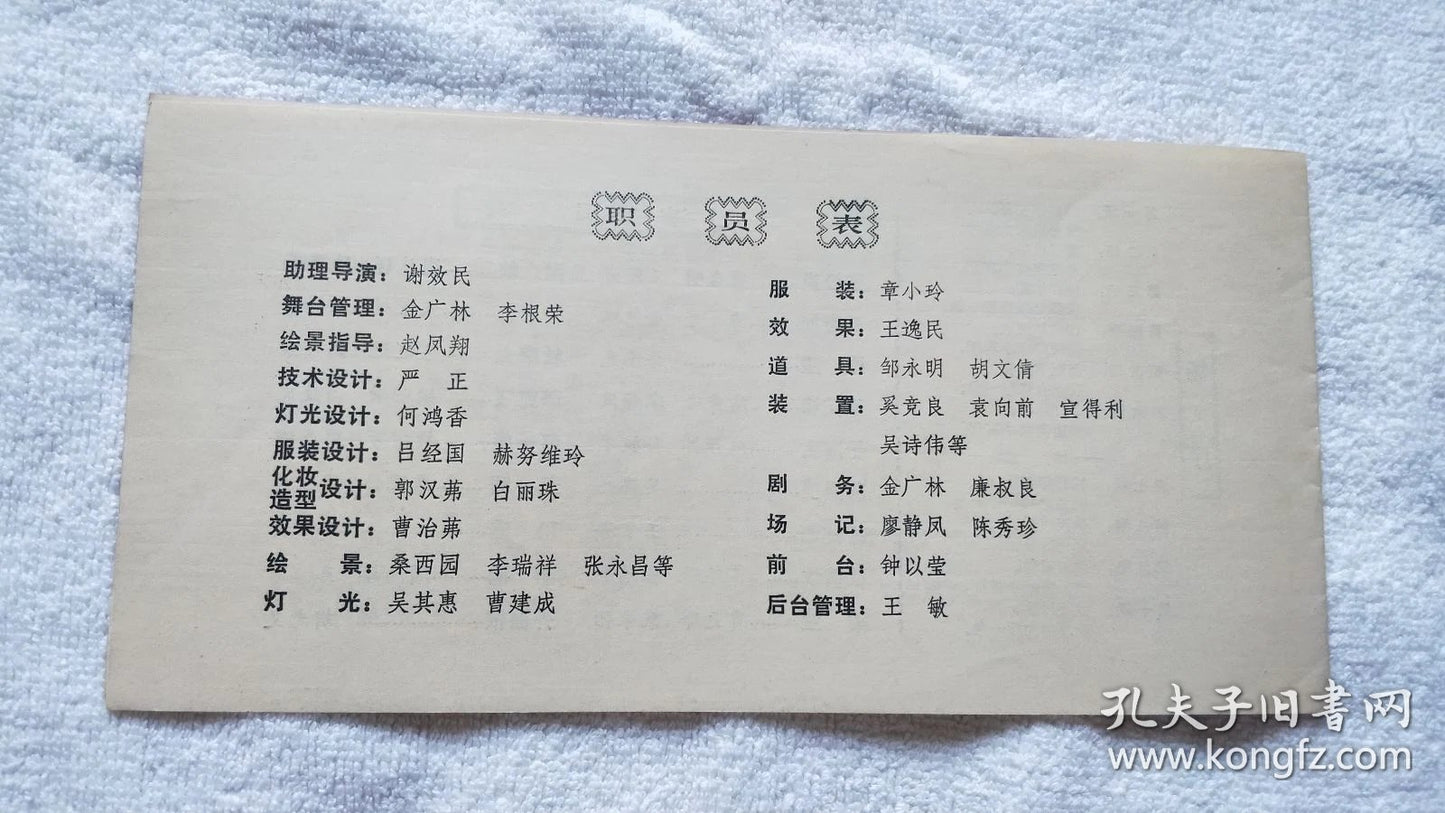 职员表
助理导演：谢效民
舞台管理：金广林 李根荣
绘景指导：赵凤翔
技术设计：严 正
灯光设计：何鸿香
服装设计：吕经国 赫努维玲
化妆造型设计：郭汉茀 白丽珠
效果设计：曹治茀
绘 景：桑西园 李瑞祥 张永昌等
灯 光：吴其惠 曹建成
服 装：章小玲
效 果：王逸民
道 具：邹永明 胡文倩
装 置：奚竞良 袁向前 宣得利
吴诗伟等
剧 务：金广林 廉叔良
场 记：廖静凤 陈秀珍
前 台：钟以莹
后台管理：王 敏
孔夫子旧书网
www.kongfz.com